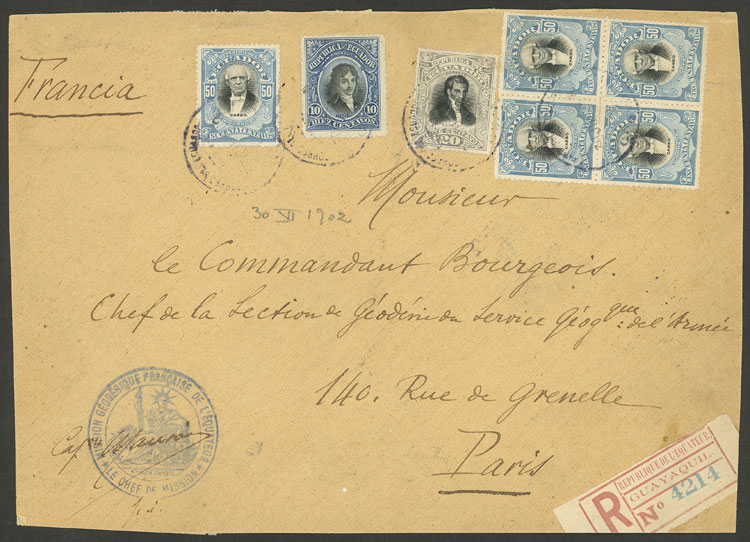 Francia
ECUADOR
50 50
CARBO.
CINCUENTA CENTAVOS
REPUBLICA DEL ECUADOR
10 10
DIEZ CENTAVOS
20
ECUADOR
50 50
ECUADOR
50 50
ECUADOR
50 50
ECUADOR
50 50
30 VI 1902
Monsieur
le Commandant Bourgeois.
Chef de la Section de Géodésie du Service Géogque de l'Armée
140. Rue de Grenelle
Paris
MISSION GÉODÉSIQUE FRANÇAISE DE L'EQUATEUR
LE CHEF DE MISSION
Cape Maurain
R
REPUBLIQUE DE L'EQUATEUR.
GUAYAQUIL.
No 4214